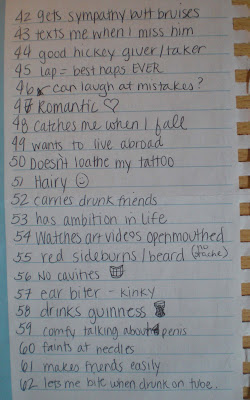 42 gets sympathy butt bruises
43 texts me when I miss him
44 good hickey giver/taker
45 lap = best naps EVER
46 can laugh at mistakes?
47 Romantic ♡
48 Catches me when I fall
49 wants to live abroad
50 Doesn't loathe my tattoo
51 Hairy ☺
52 carries drunk friends
53 has ambition in life
54 Watches art videos openmouthed
55 red sideburns/beard (no stache)
56 No cavities
57 ear biter - kinky
58 drinks guinness
59 comfy talking about penis
60 faints at needles
61 makes friends easily
62 lets me bite when drunk on tube.